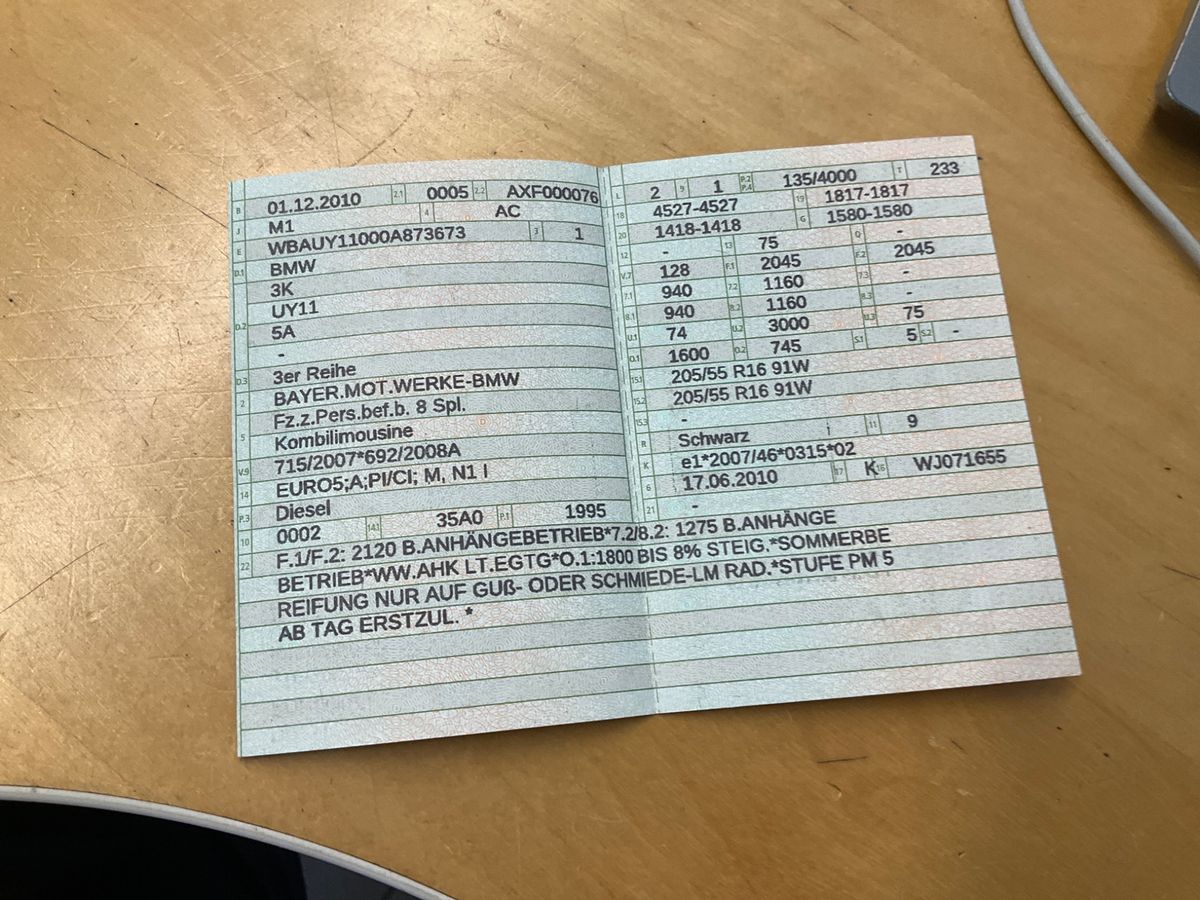 B 01.12.2010 2.1 0005 2.2 AXF000076
J M1 4 AC
E WBAUY11000A873673 3 1
D.1 BMW
3K
D.2 UY11
5A
-
D.3 3er Reihe
2 BAYER.MOT.WERKE-BMW
5 Fz.z.Pers.bef.b. 8 Spl.
Kombilimousine
V.9 715/2007*692/2008A
14 EURO5;A;PI/CI; M, N1 I
P.3 Diesel
10 0002 14.1 35A0 P.1 1995
L 2 9 1 P.2 P.4 135/4000 T 233
18 4527-4527 19 1817-1817
20 1418-1418 G 1580-1580
12 - 13 75 Q -
V.7 128 F.1 2045 F.2 2045
7.1 940 7.2 1160 7.3 -
8.1 940 8.2 1160 8.3 -
U.1 74 U.2 3000 U.3 75
O.1 1600 O.2 745 S.1 5 S.2 -
15.1 205/55 R16 91W
15.2 205/55 R16 91W
15.3 -
R Schwarz 11 9
K e1*2007/46*0315*02
6 17.06.2010 17 K 16 WJ071655
21 -
22 F.1/F.2: 2120 B.ANHÄNGEBETRIEB*7.2/8.2: 1275 B.ANHÄNGE
BETRIEB*WW.AHK LT.EGTG*O.1:1800 BIS 8% STEIG.*SOMMERBE
REIFUNG NUR AUF GUß- ODER SCHMIEDE-LM RAD.*STUFE PM 5
AB TAG ERSTZUL. *